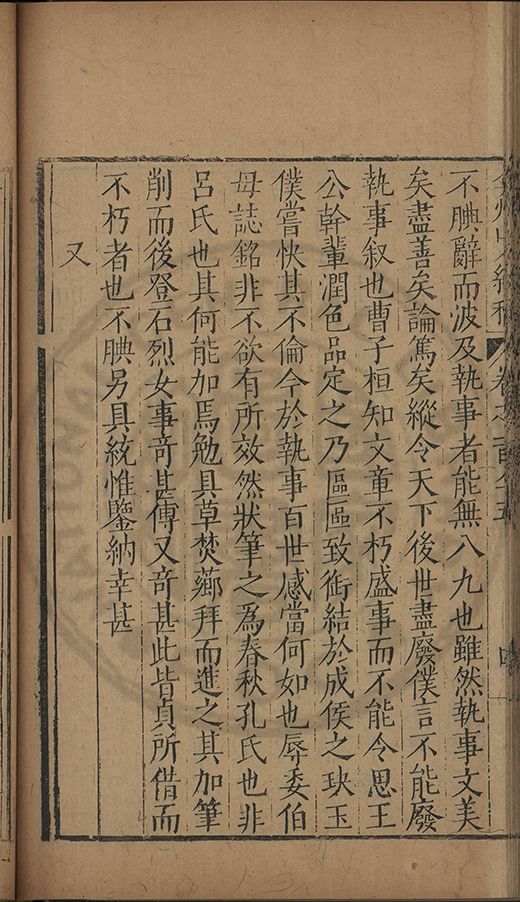 不腆辭而波及執事者能無八九也雖然執事文美
矣盡善矣論篤矣縱令天下後世盡廢僕言不能廢
執事叙也曹子桓知文章不朽盛事而不能令思王
公幹輩潤色品定之乃區區致銜結於成侯之玦玉
僕嘗怏其不倫今於執事百世感當何如也辱委伯
母誌銘非不欲有所效然狀筆之為春秋孔氏也非
呂氏也其何能加焉勉具草焚薌拜而進之其加筆
削而後登石烈女事竒甚傳又竒甚此皆貞所借而
不朽者也不腆另具統惟鑒納幸甚
又